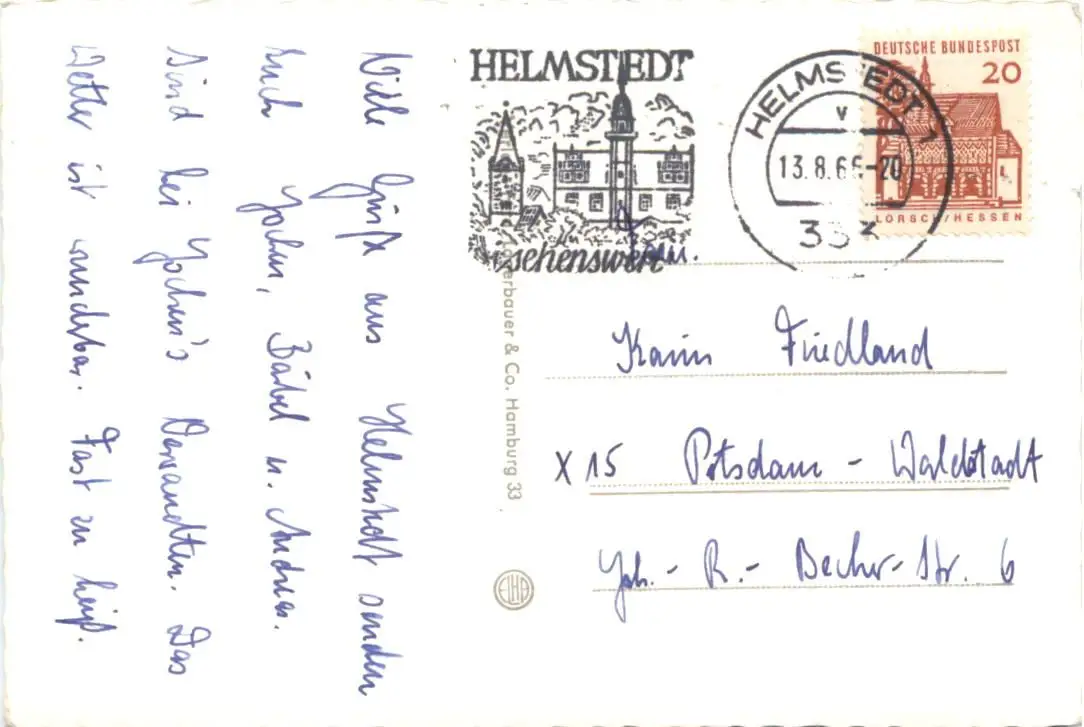 Viele Grüße aus Helmstedt senden
Euch Jochen, Bärbel u. Andreas.
Sind bei Jochen's Verwandten. Das
Wetter ist wunderbar. Fast zu heiß.
HELMSTEDT
sehenswert
HELMSTEDT 1
v
13.8.66-20
DEUTSCHE BUNDESPOST
20
LORSCH/HESSEN
Fam.
Karin Friedland
X15 Potsdam - Waldstadt
Joh.- R.- Becher-Str. 6
& Co. Hamburg 33